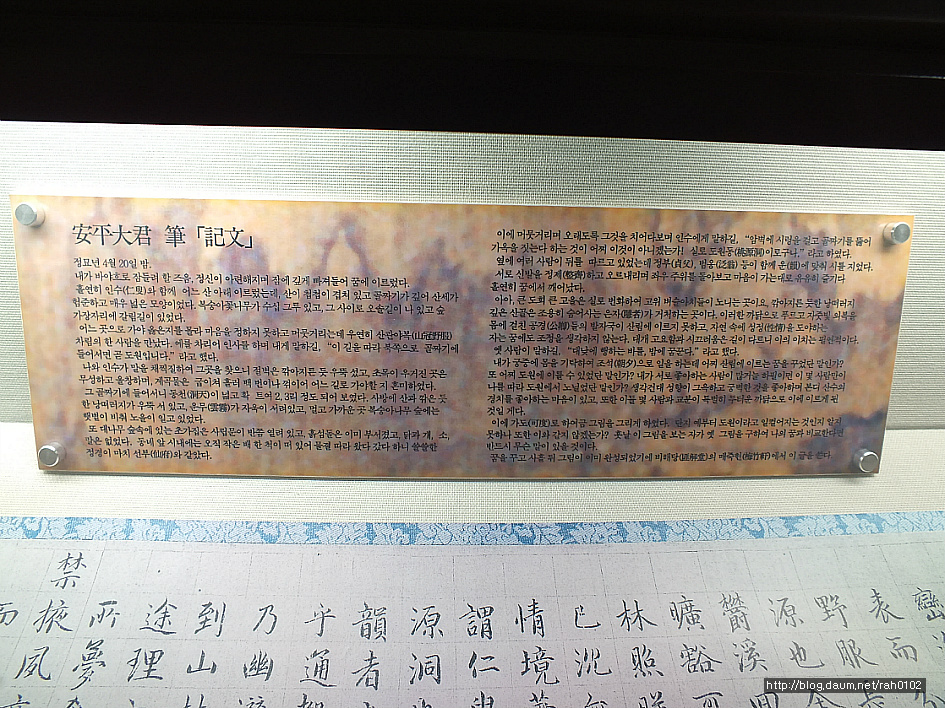 安平大君 筆「記文」
정묘년 4월 20일 밤.
내가 바야흐로 잠들려 할 즈음, 정신이 아련해지며 잠에 깊게 빠져들어 꿈에 이르렀다.
홀연히 인수(仁叟)와 함께 어느 산 아래 이르렀는데, 산이 첩첩이 겹쳐 있고 골짜기가 깊어 산세가
험준하고 매우 넓은 모양이었다. 복숭아꽃나무가 수십 그루 있고, 그 사이로 오솔길이 나 있고 숲
가장자리에 갈림길이 있었다.
어느 곳으로 가야 옳은지를 몰라 마음을 정하지 못하고 머뭇거리는데 우연히 산관야복(山冠野服)
차림의 한 사람을 만났다. 예를 차리어 인사를 하며 내게 말하길, “이 길을 따라 북쪽으로 골짜기에
들어서면 곧 도원입니다.” 라고 했다.
나와 인수가 말을 채찍질하여 그곳을 찾으니 절벽은 깎아지른 듯 우뚝 섰고, 초목이 우거진 곳은
무성하고 울창하며, 계곡물은 굽이쳐 흘러 백 번이나 꺾이어 어느 길로 가야할 지 혼미하였다.
그 골짜기에 들어서니 동천(洞天)이 넓고 확 트여 2, 3리 정도 되어 보였다. 사방에 산과 깎은 듯
한 낭떠러지가 우뚝 서 있고, 운무(雲霧)가 자욱이 서려있고, 멀고 가까운 곳 복숭아나무 숲에는
햇빛이 비춰 노을이 일고 있었다.
또 대나무 숲속에 있는 초가집은 사립문이 반쯤 열려 있고, 흙섬돌은 이미 부서졌고, 닭과 개, 소,
말은 없었다. 동네 앞 시내에는 오직 작은 배 한 척이 떠 있어 물결 따라 왔다 갔다 하니 쓸쓸한
정경이 마치 선부(仙府)와 같았다.
이에 머뭇거리며 오래도록 그것을 치어다보며 인수에게 말하길, “암벽에 시렁을 걸고 골짜기를 뚫어
가옥을 짓는다 하는 것이 어찌 이것이 아니겠는가! 실로 도원동(桃源洞)이로구나.” 라고 하였다.
옆에 여러 사람이 뒤를 따르고 있었는데 정부(貞父), 범옹(泛翁) 등이 함께 운(韻)에 맞춰 시를 지었다.
서로 신발을 정제(整齊)하고 오르내리며 좌우 주위를 돌아보고 마음이 가는대로 유유히 즐기다
홀연히 꿈에서 깨어났다.
아아, 큰 도회 큰 고을은 실로 번화하여 고위 벼슬아치들이 노니는 곳이요, 깎아지른 듯한 낭떠러지
깊은 산골은 조용히 숨어사는 은자(隱者)가 거처하는 곳이다. 이러한 까닭으로 푸르고 자줏빛 의복을
몸에 걸친 공경(公卿)들의 발자국이 산림에 이르지 못하고, 자연 속에 성정(性情)을 도야하는
자는 꿈에도 조정을 생각하지 않는다. 대개 고요함과 시끄러움은 길이 다르니 이의 이치는 필연적이다.
옛 사람이 말하길, “대낮에 행하는 바를, 밤에 꿈꾼다.” 라고 했다.
내가 궁중에 몸을 기탁하여 조석(朝夕)으로 일을 하는데 어찌 산림에 이르는 꿈을 꾸었단 말인가?
또 어찌 도원에 이를 수 있었던 말인가? 내가 서로 좋아하는 사람이 많거늘 하필이면 이 몇 사람만이
나를 따라 도원에서 노닐었단 말인가? 생각건대 성향이 그윽하고 궁벽한 것을 좋아하며 본디 산수의
경치를 좋아하는 마음이 있고, 또한 이들 몇 사람과 교분이 특별히 두터운 까닭으로 이에 이르게 된
것일 게다.
이에 가도(可度)로 하여금 그림을 그리게 하였다. 단지 예부터 도원이라고 일컬어지는 것인지 알지
못하나 또한 이와 같지 않겠는가? 훗날 이 그림을 보는 자가 옛 그림을 구하여 나의 꿈과 비교한다면
반드시 무슨 말이 있을 것이다.
꿈을 꾸고 사흘 뒤 그림이 이미 완성되었기에 비해당(匪懈堂)의 매죽헌(梅竹軒)에서 이 글을 쓴다
禁
而 掖 所 途 到 乃 乎 韻 源 謂 情 已 林 曠 欝 源 野 表 巒
夙 夢 理 山 幽 通 者 洞 仁 境 照 豁 溪 也 服 而
http://blog.daum.net/rah0102